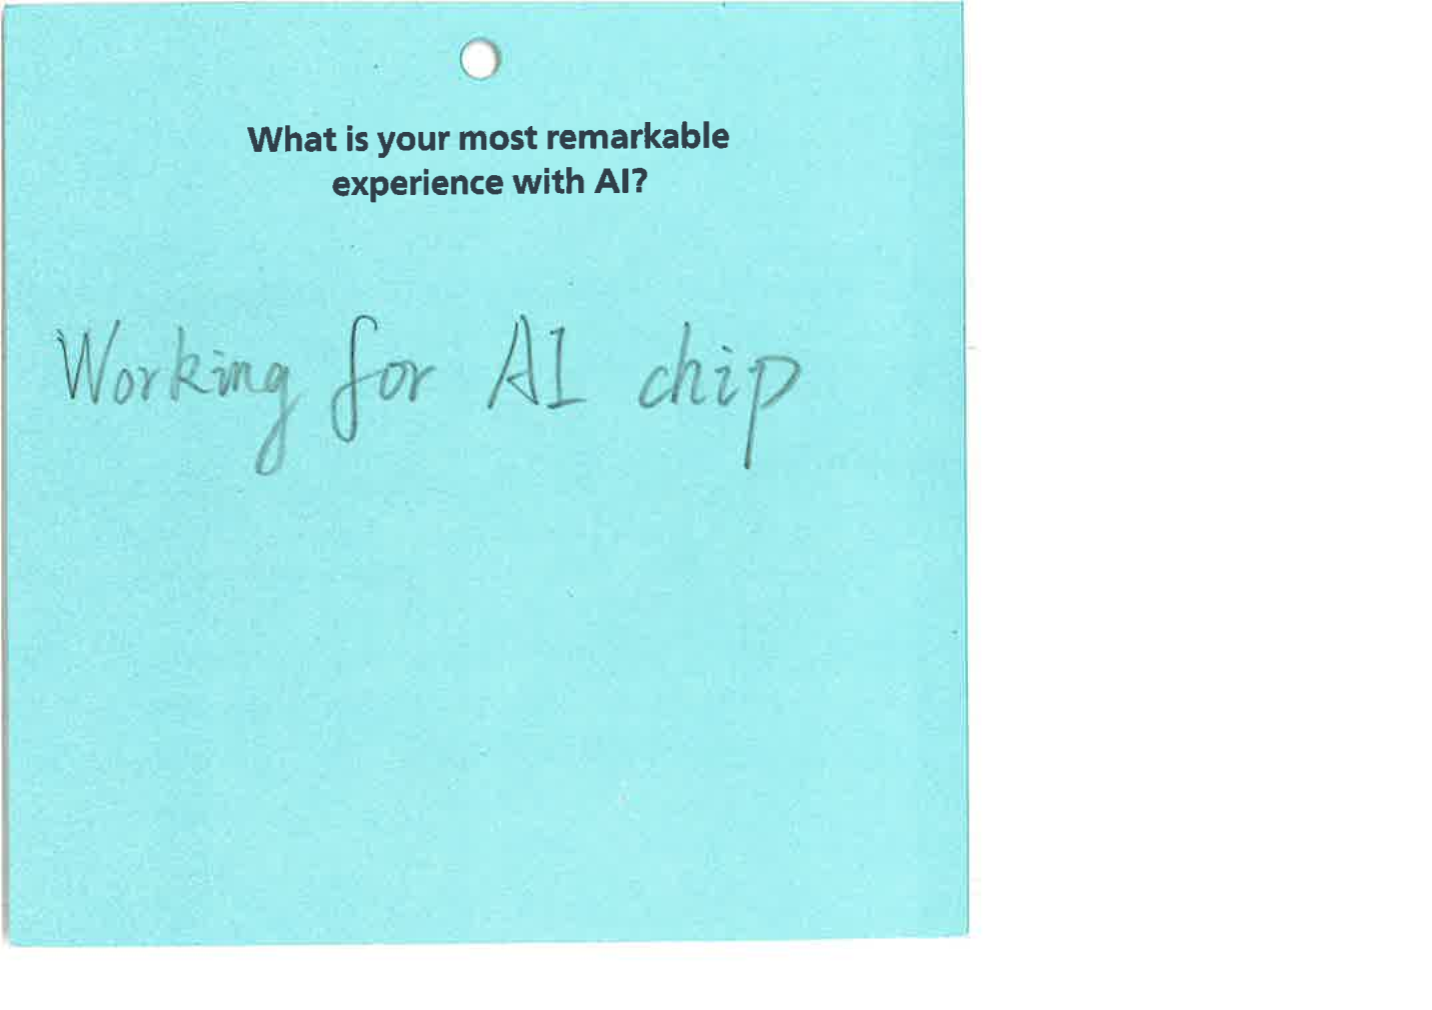 What is your most remarkable
experience with AI?
Working for AI chip